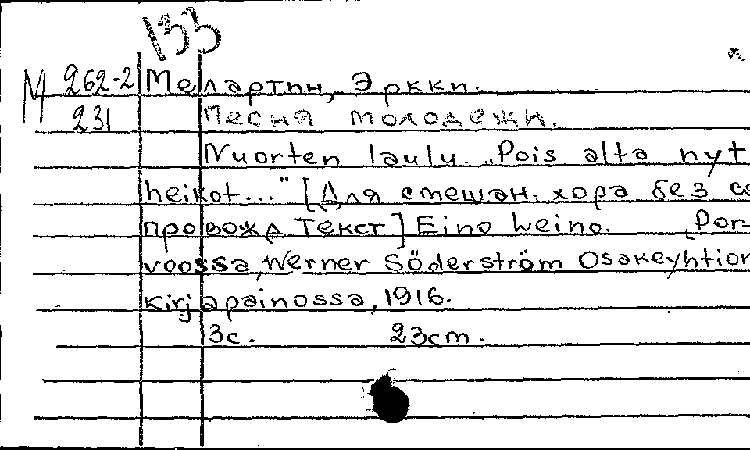 133
М 262-2 Мелартин, Эркки.
231 Песня молодежи.
Nuorten laulu. „Pois alta nyt
heikot..." [Для смешан. хора без со
провожд. Текст] Eino Leino. [Por-
voossa, Werner Söderström Osakeyhtiön
kirjapainossa, 1916.
3с. 23cm.